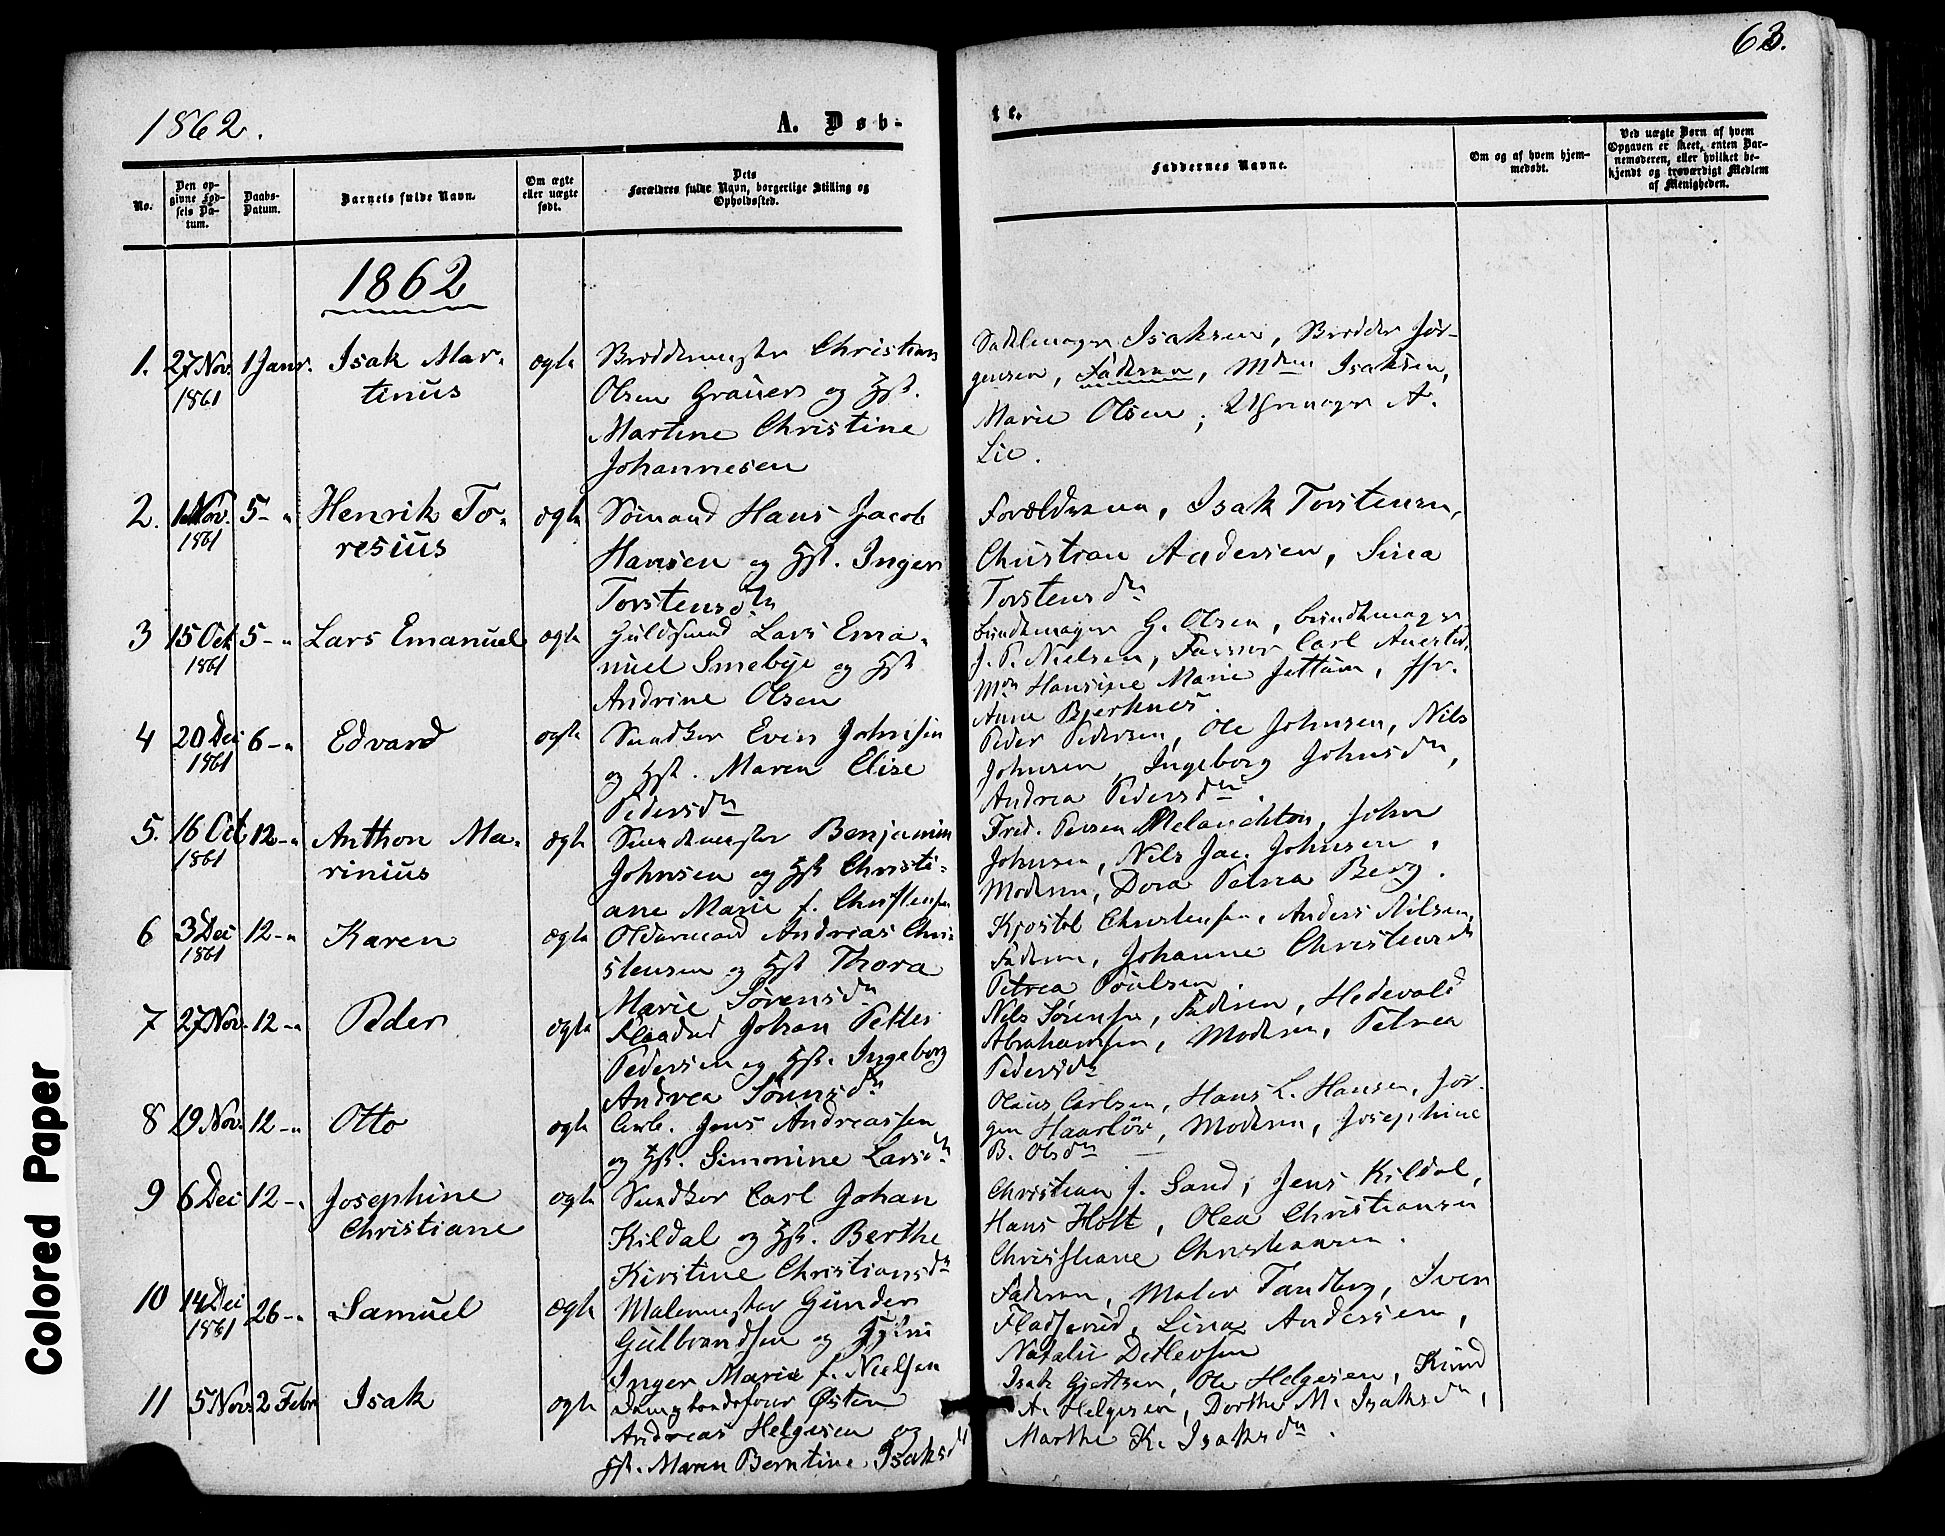 63.
1862.
A. Døb-
te.
No.
Den op-
givne Fød-
sels Da-
tum.
Daabs-
Datum.
Barnets fulde Navn.
Om ægte
eller uægte
født.
Dets
Forældres fulde Navn, borgerlige Stilling og
Opholdssted.
Faddernes Navne.
Om og af hvem hjem-
medøbt.
Ved uægte Børn af hvem
Opgaven er skeet, enten Bar-
nemoderen, eller hvilket be-
kjendt og troværdigt Medlem
af Menigheden.
1862
1. 27 Nov. 1861 1 Janr. Isak Mar-
tinus
ægte
Christian
Olsen Grauer og Hst.
Martine Christine
Johannesen
Sadelmager Isaksen, Jør-
gensen, Faderen, Mdm Isaksen,
Marie Olsen, Uhrmager A.
Lie.
2. Nov. 1861 5-" Henrik To-
resius
ægte
Sømand Hans Jacob
Hansen og Hst. Inger
Torstensdtn
Forældrene, Isak Torstensen,
Christian Andersen, Sina
Torstensdtn
3 15 Oct 1861 5-" Lars Emanuel
ægte
Guldsmed Lars Ema-
nuel Smebye og Hst
Andrine Olsen
Bundtmager G. Olsen, Bundtmager
J. P. Nielsen, Farver Carl
Mdm Hansine Marie Jettum, Jfr.
Anne Bjerknes.
4 20 Dec 1861 6-" Edvard
ægte
Snedker Even Johnsen
og Hst. Maren Elise
Pedersdtn
Peder Pedersen, Ole Johnsen, Nils
Johnsen, Ingeborg Johnsdtn,
Andrea Pedersdtn
5. 16 Oct 1861 12-" Anthon Ma-
rinius
ægte
Benjamin
Johnsen og Hst Christi-
ane Marie f. Christensen
Fred. Melanchton, John
Johnsen, Nils Jac. Johnsen,
Moderen, Dora Petrea Berg.
6 3 Dec 1861 12-" Karen
ægte
Oldermand Andreas Chri-
stensen og Hst Thora
Marie Sørensdtn
Christensen, Anders Nilsen,
Faderen, Johanne Christensdtn
Petrea Poulsen.
7 27 Nov. 12-" Peder
ægte
Johan Petter
Pedersen og Hst. Ingeborg
Andrea
Nils Sørensen, Faderen, Hedevald
Abrahamsen, Moderen, Petrea
Pedersdtn
8 19 Nov. 12-" Otto
ægte
Arb. Jens Andreassen
og Hst. Simonine Larsdtn
Olaus Carlsen, Hans L. Hansen, Jør-
gen Haarløv, Moderen, Josephine
B. Olsdtn
9 6 Dec 12-" Josephine
Christiane
ægte
Snedker Carl Johan
Kildal og Hst. Berthe
Kirstine Christiansdtn
Christian J. Sand, Jens Kildal,
Hans Holt, Olea Christiansen
Christiane Christiansen.
10 14 Dec 1861 26-" Samuel
ægte
Malermester Gunder
Gulbrandsen og
Inger Marie f. Nielsen
Faderen, Maler Tandberg, Iver
Lina Andersen,
Natalie Detlevsen
11 5 Nov. 2 Febr Isak
ægte
Østen
Andreas Helgesen og
Hst. Maren Berntine Isaksd
Isak Gjertsen, Ole Helgesen, Knud
A. Helgesen, Dorthe M. Isaksdtn,
Marthe K. Isaksdtn.
Colored Paper